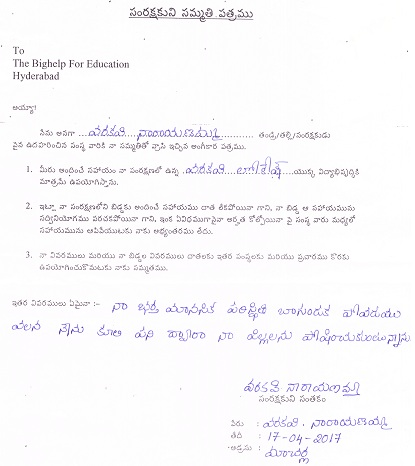 సంరక్షకుని సమ్మతి పత్రము
To
The Bighelp For Education
Hyderabad
అయ్యా!
నేను అనగా ....వరకవి....నారాయణమ్మ............ తండ్రి/తల్లి/సంరక్షకుడు
పైన ఉదహరించిన సంస్థ వారికి నా సమ్మతితో వ్రాసి ఇచ్చిన అంగీకార పత్రము.
1. మీరు అందించే సహాయం నా సంరక్షణలో ఉన్న ..వరకవి.... ....యొక్క విద్యాభివృద్ధికి
మాత్రమే ఉపయోగిస్తాను.
2. ఇట్లా నా సంరక్షణలోని బిడ్డకు అందించే సహాయము దాత లేకపోయినా గాని, నా బిడ్డ ఆ సహాయమును
సద్వినియోగము పరచకపోయినా గాని, ఇంక ఏవిధముగానైనా అర్హత కోల్పోయినా పై సంస్థ వారు మధ్యలో
సహాయమును ఆపివేయుటకు నాకు అభ్యంతరము లేదు.
3. నా వివరములు మరియు నా బిడ్డల వివరములు దాతలకు ఇతర సంస్థలకు మరియు ప్రచారము కొరకు
ఉపయోగించుకొనుటకు నాకు సమ్మతము.
ఇతర వివరములు ఏమైనా :- నా భర్త మానసిక పరిస్థితి బాగుండక పోవడము
వలన నేను కూలి పని ద్వారా నా పిల్లలను పోషించుకుంటున్నాను
వరకవి నారాయణమ్మ
సంరక్షకుని సంతకం
పేరు : వరకవి. నారాయణమ్మ
తేది : 17-04-2017
అడ్రసు : మాచర్ల